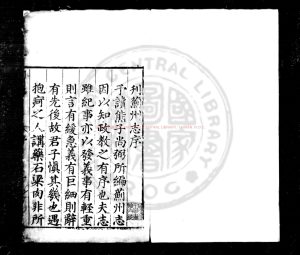 刋薊州志序
予讀熊子尚弼所編薊州志
因以知政教之有序也夫志
雖紀事亦以發義事有輕重
則言有緩急義有巨細則辭
有先後故君子慎其幾也遇
抱疴之人講藥石梁肉非所
CENTRAL LIBRARY